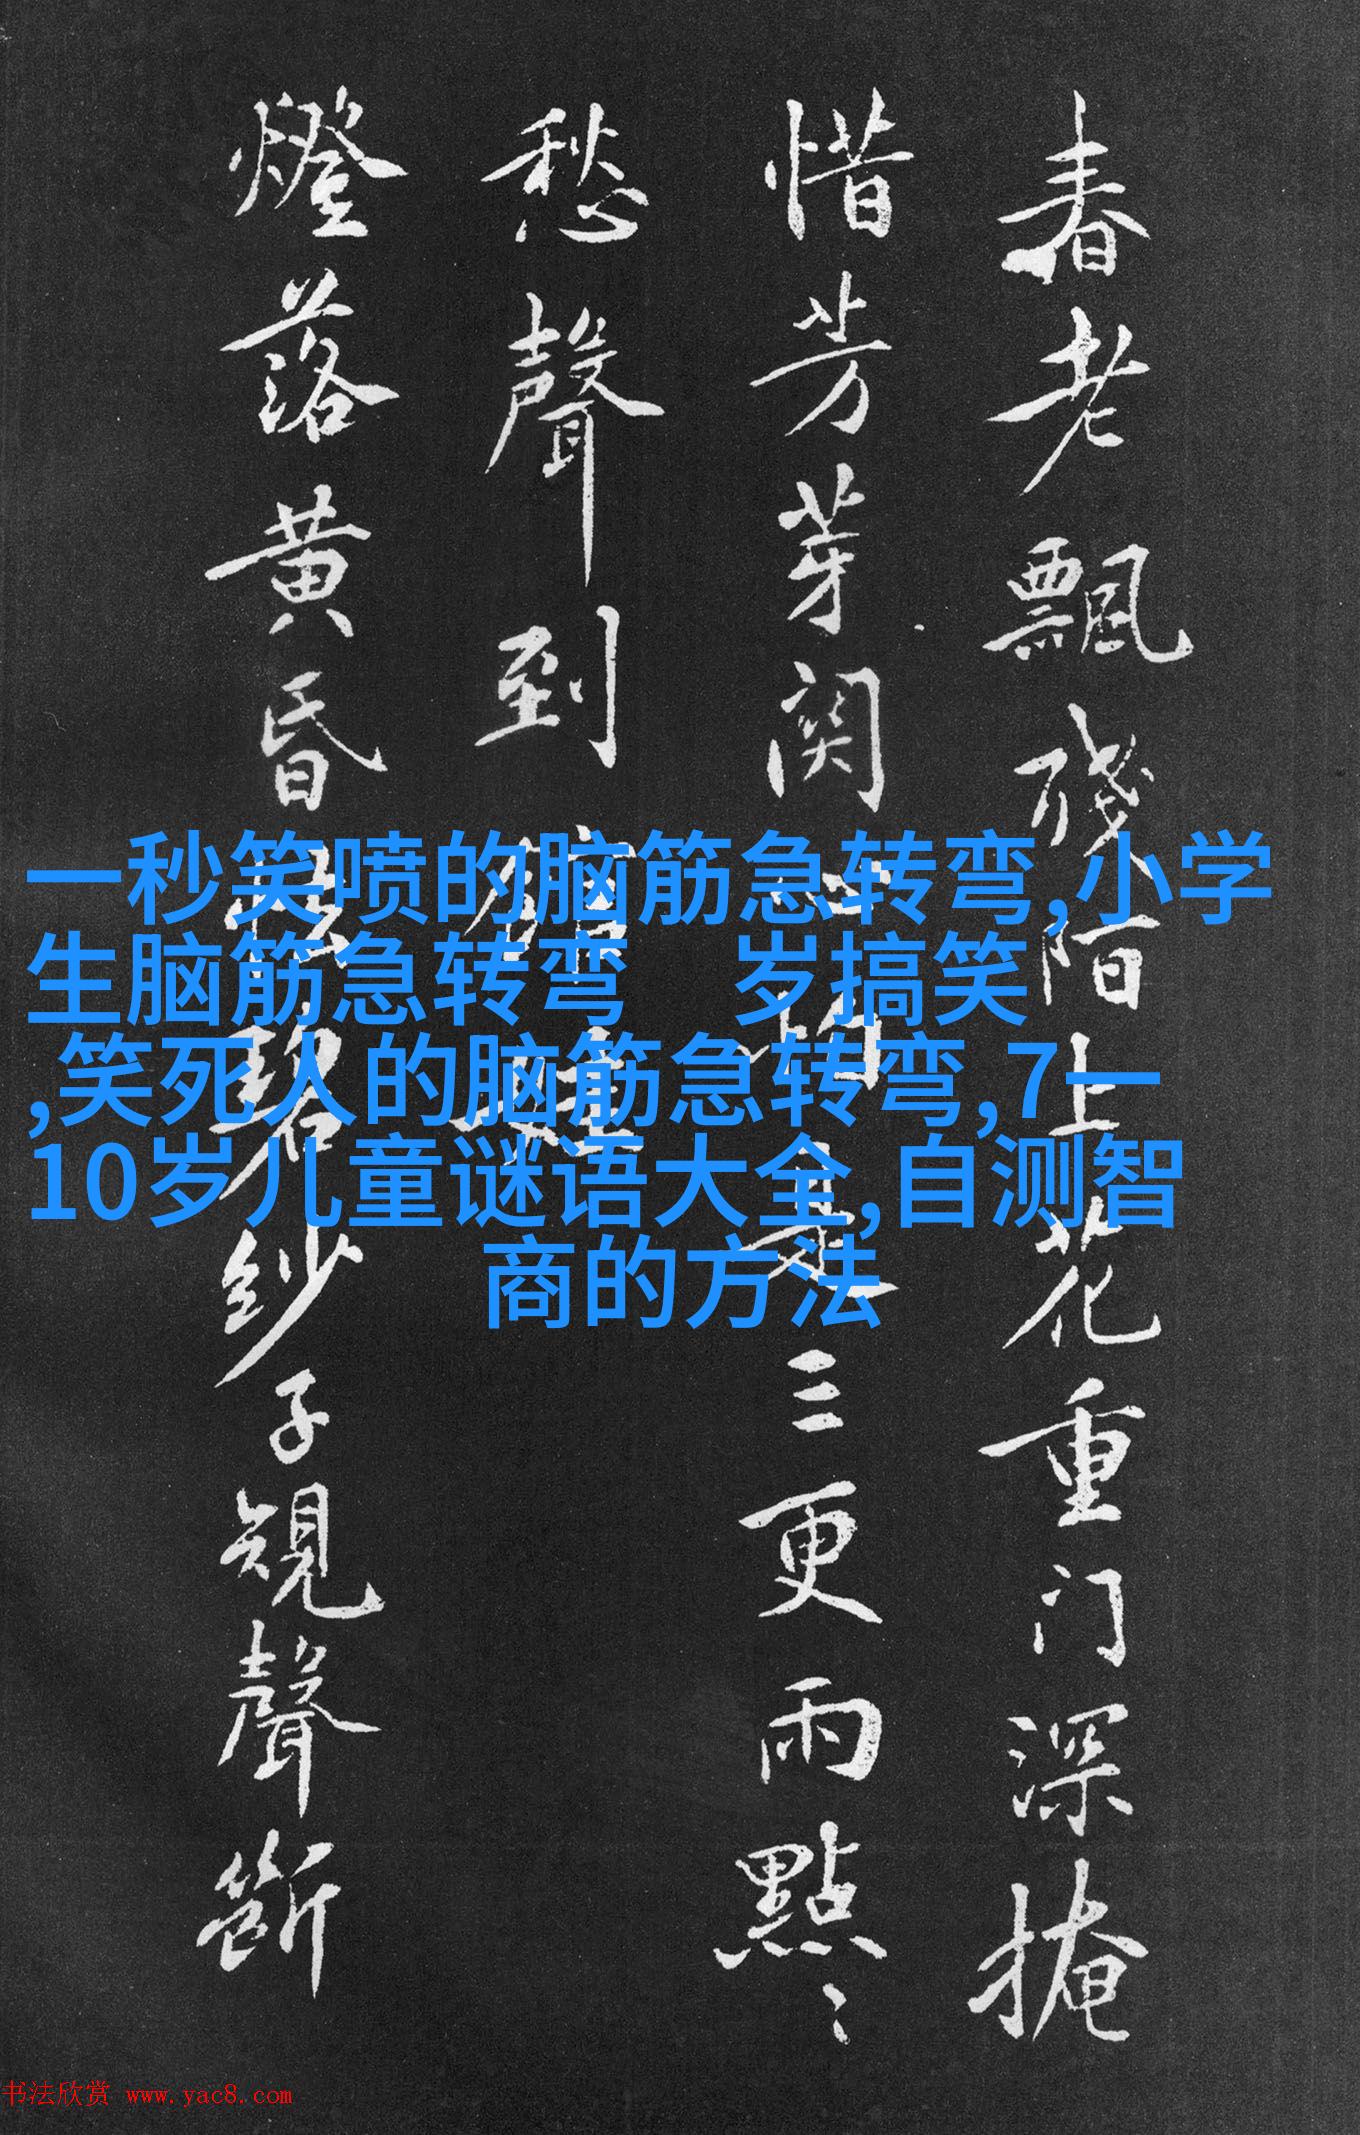 春老飄殘陌上花重门深掩
惜芳芽関心是三更雨點〻
愁聲到
燈落黄昏碧纱子規聲斷
一秒笑喷的脑筋急转弯,小学
生脑筋急转弯 岁搞笑
,笑死人的脑筋急转弯,7一
10岁儿童谜语大全,自测智
商的方法
书法欣赏 www.yac8.com